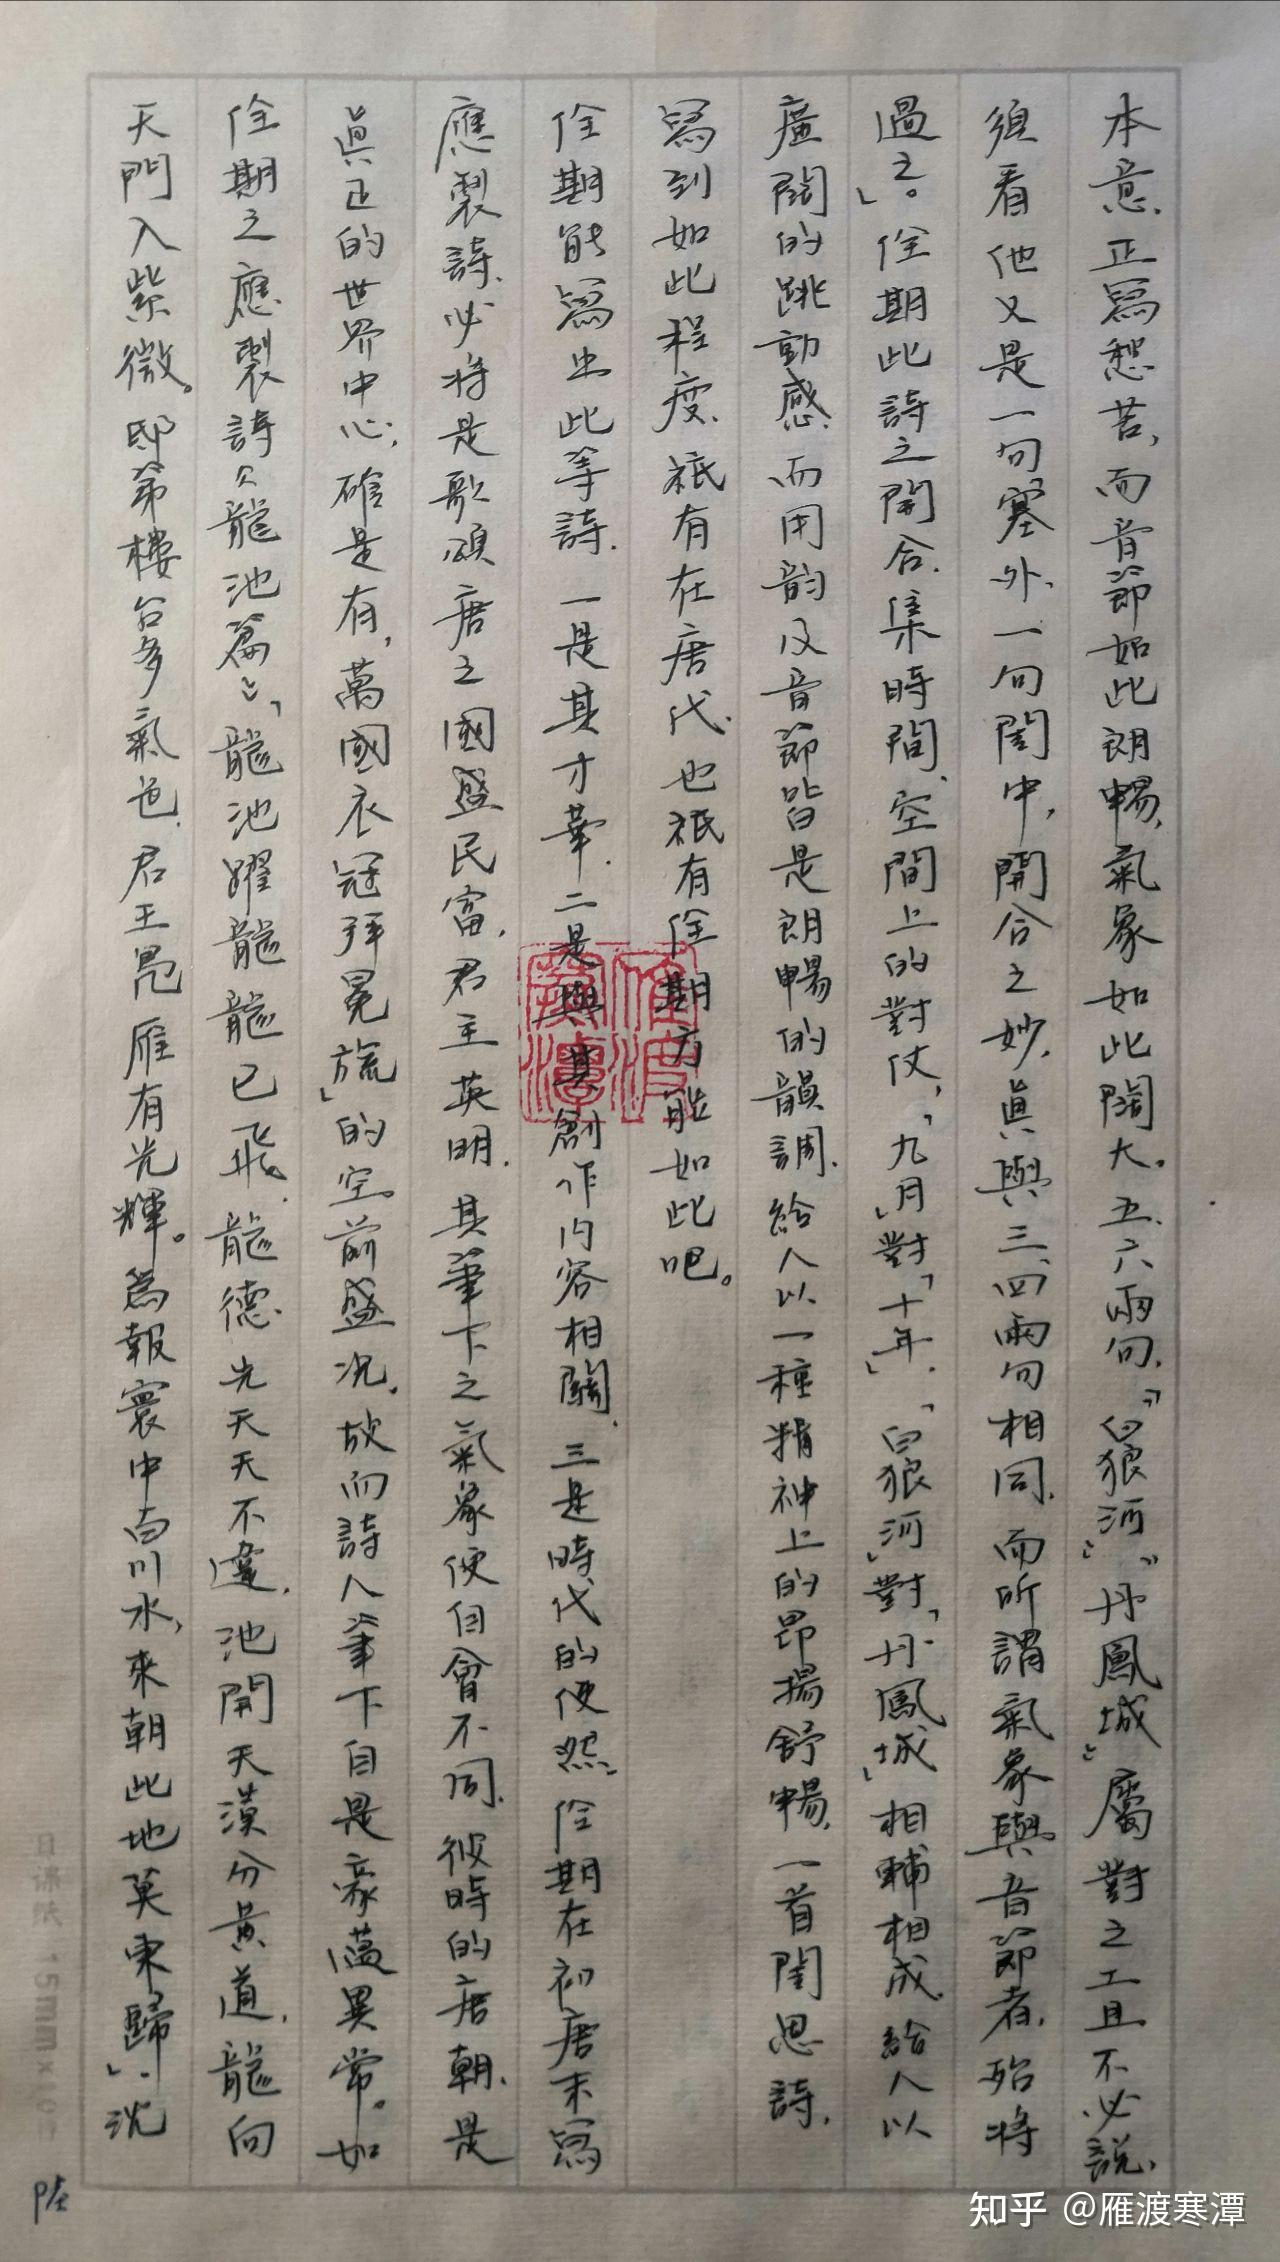 本意、正寫愁苦，而音節如此朗暢，氣象如此闊大。五、六兩句，「白狼河」「丹鳳城」屬對之工且不必說，
須看他又是一句塞外、一句閨中，開合之妙，眞與三、四兩句相同。而所謂氣象與音節者，殆將
過之。」佺期此詩之開合、集時間、空間上的對仗，「九月」對「十年」、「白狼河」對「丹鳳城」相輔相成，給人以
廣闊的跳動感，而用韵及音節皆是朗暢的韻調，給人以一種精神上的昂揚舒暢，一首閨思詩，
寫到如此程度，祇有在唐代，也祇有佺期方能如此吧。
佺期能寫出此等詩，一是其才華，二是與其創作内容相關，三是時代的使然。佺期在初唐末寫
應製詩，必將是歌頌唐之國盛民富，君主英明，其筆下之氣象便自會不同，彼時的唐朝，是
眞正的世界中心，確是有，萬國衣冠拜冕旒」的空前盛况，故而詩人筆下自是豪蕩異常。如
佺期之應製詩《龍池篇》：「龍池躍龍龍已飛，龍德先天天不違，池開天漢分黃道，龍向
天門入紫微。邸第樓台多氣色，君王鳧雁有光輝。爲報寰中百川水，來朝此地莫東歸」、沈
雁渡寒潭
日課紙 15mm×10行
知乎 @雁渡寒潭